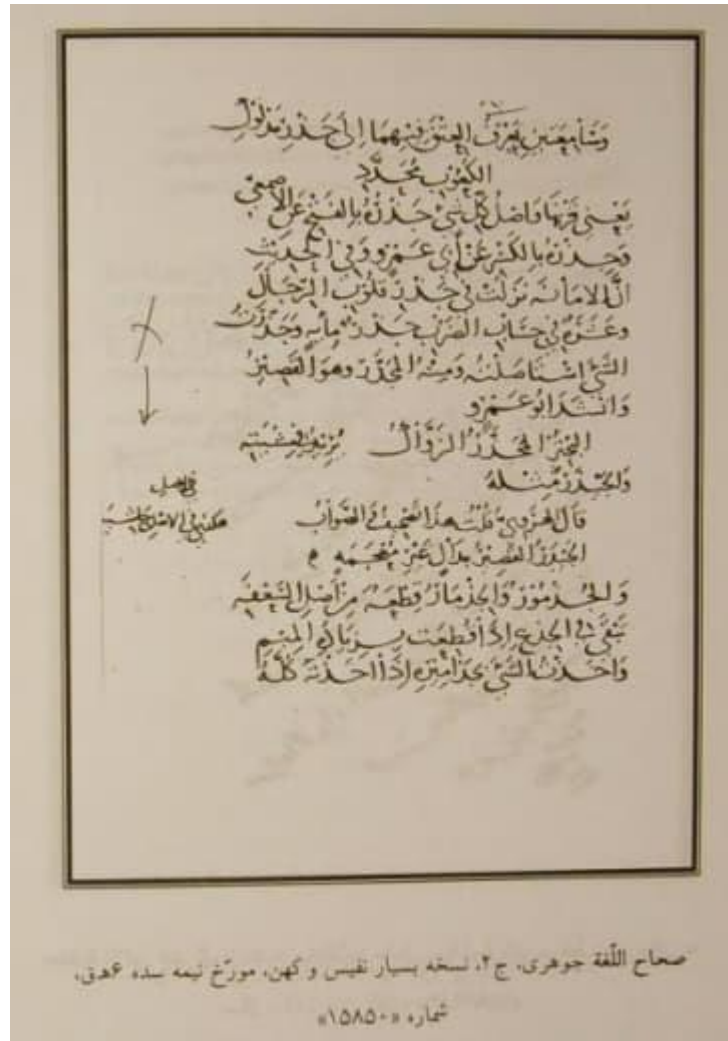 وسامعتين يعرف العتق فيهما الى جذر مدلول
الكعوب محدد
يعني قرنها واصل كل شي جذره بالفتح عن الاصمعي
وجذره بالكسر عن أبي عمرو وفي الحديث
ان الامانة نزلت في جذر قلوب الرجال
وعشرة في حساب الضرب جذر مايه وجذرت
الشي استاصلته ومنه المجذر وهو القصير
وانشد ابو عمرو
البحتر المجذر الزوال
والجيذر مثله
قال الهروي قلت هذا تصحيف والصواب
الجيدر القصير بدال غير معجمه
والجذمور والجذمار قطعه من أصل السعفه
تبقى في الجذع اذا قطعت بزيادة الميم
واخذت الشي بجذاميره اذا اخذته كله
صحاح اللّغة جوهری، ج۲، نسخه بسیار نفیس و کهن، مورّخ نیمه سده ۶هـق،
شماره «۱۵۸۵۰»